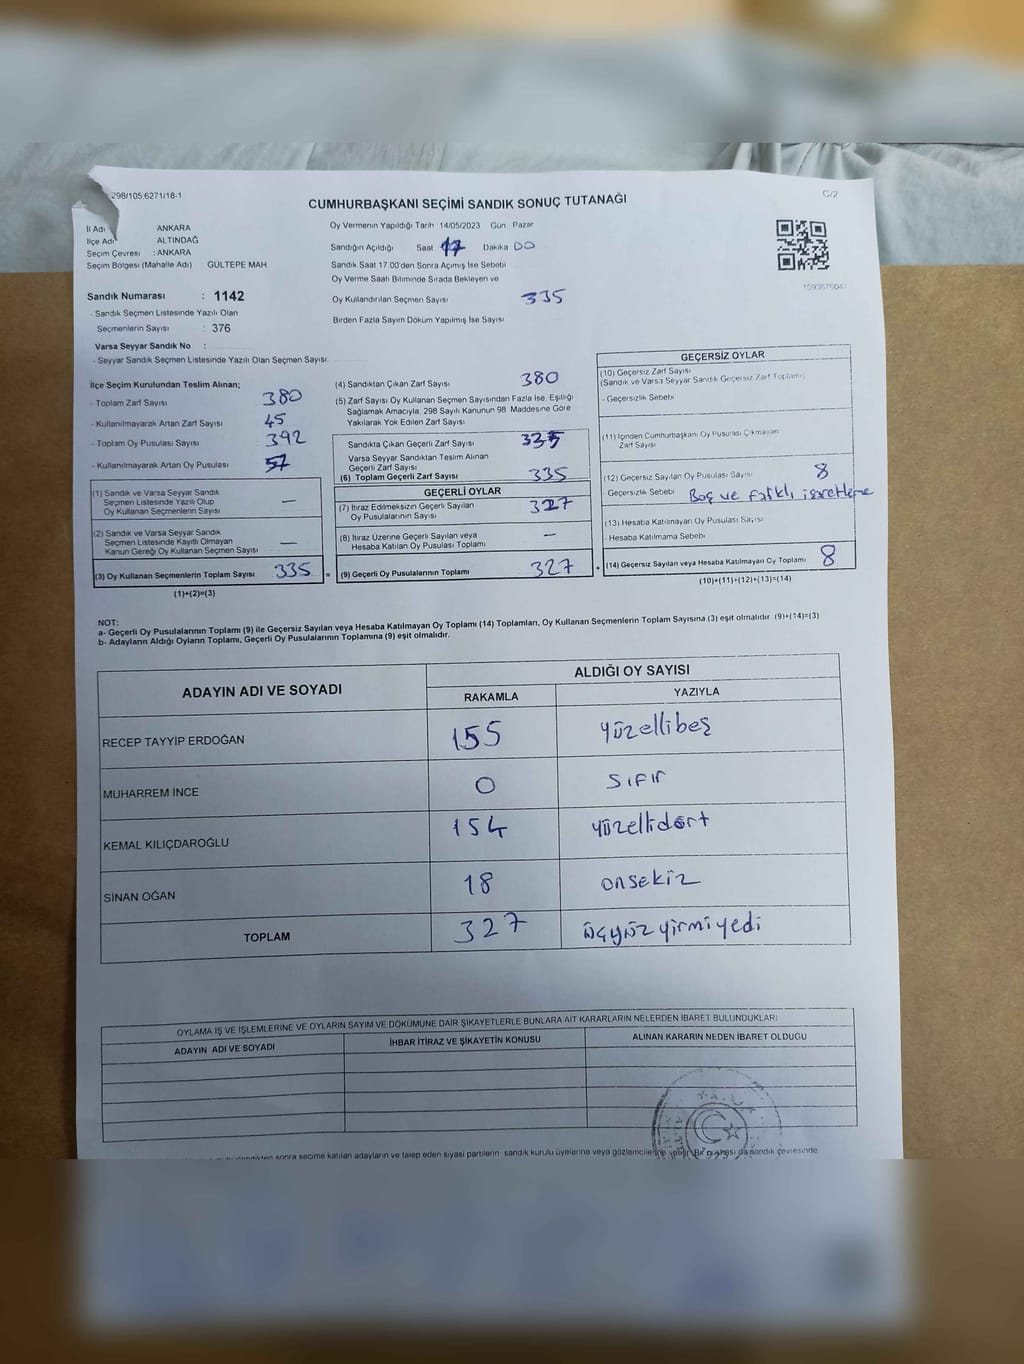 298/105,6271/18-1
C/2
CUMHURBAŞKANI SEÇİMİ SANDIK SONUÇ TUTANAĞI
İl Adı ANKARA
İlçe Adı ALTINDAĞ
Seçim Çevresi : ANKARA
Seçim Bölgesi (Mahalle Adı) GÜLTEPE MAH.
Sandık Numarası : 1142
- Sandık Seçmen Listesinde Yazılı Olan
Seçmenlerin Sayısı : 376
Varsa Seyyar Sandık No :
- Seyyar Sandık Seçmen Listesinde Yazılı Olan Seçmen Sayısı
Oy Vermenin Yapıldığı Tarih 14/05/2023 Gün Pazar
Sandığın Açıldığı Saat 17 Dakika 00
Sandık Saat 17.00'den Sonra Açılmış İse Sebebi
Oy Verme Saati Bitiminde Sırada Bekleyen ve
Oy Kullandırılan Seçmen Sayısı 335
Birden Fazla Sayım Döküm Yapılmış İse Sayısı
İlçe Seçim Kurulundan Teslim Alınan;
- Toplam Zarf Sayısı 380
- Kullanılmayarak Artan Zarf Sayısı 45
- Toplam Oy Pusulası Sayısı 392
- Kullanılmayarak Artan Oy Pusulası 57
(1) Sandık ve Varsa Seyyar Sandık
Seçmen Listesinde Yazılı Olup
Oy Kullanan Seçmenlerin Sayısı —
(2) Sandık ve Varsa Seyyar Sandık
Seçmen Listesinde Kayıtlı Olmayan
Kanun Gereği Oy Kullanan Seçmen Sayısı —
(3) Oy Kullanan Seçmenlerin Toplam Sayısı 335 =
(1)+(2)=(3)
(4) Sandıktan Çıkan Zarf Sayısı 380
(5) Zarf Sayısı Oy Kullanan Seçmen Sayısından Fazla İse, Eşitliği
Sağlamak Amacıyla, 298 Sayılı Kanunun 98. Maddesine Göre
Yakılarak Yok Edilen Zarf Sayısı
Sandıkta Çıkan Geçerli Zarf Sayısı 335
Varsa Seyyar Sandıktan Teslim Alınan
Geçerli Zarf Sayısı
(6) Toplam Geçerli Zarf Sayısı 335
GEÇERLİ OYLAR
(7) İtiraz Edilmeksizin Geçerli Sayılan
Oy Pusulalarının Sayısı 327
(8) İtiraz Üzerine Geçerli Sayılan veya
Hesaba Katılan Oy Pusulası Toplamı —
(9) Geçerli Oy Pusulalarının Toplamı 327 +
GEÇERSİZ OYLAR
(10) Geçersiz Zarf Sayısı
(Sandık ve Varsa Seyyar Sandık Geçersiz Zarf Toplamı)
- Geçersizlik Sebebi
(11) İçinden Cumhurbaşkanı Oy Pusulası Çıkmayan
Zarf Sayısı
(12) Geçersiz Sayılan Oy Pusulası Sayısı 8
- Geçersizlik Sebebi Boş ve Farklı işaretleme
(13) Hesaba Katılmayan Oy Pusulası Sayısı
- Hesaba Katılmama Sebebi
(14) Geçersiz Sayılan veya Hesaba Katılmayan Oy Toplamı 8
(10)+(11)+(12)+(13)=(14)
NOT:
a- Geçerli Oy Pusulalarının Toplamı (9) ile Geçersiz Sayılan veya Hesaba Katılmayan Oy Toplamı (14) Toplamları, Oy Kullanan Seçmenlerin Toplam Sayısına (3) eşit olmalıdır. (9)+(14)=(3)
b- Adayların Aldığı Oyların Toplamı, Geçerli Oy Pusulalarının Toplamına (9) eşit olmalıdır.
ADAYIN ADI VE SOYADI ALDIĞI OY SAYISI
RAKAMLA YAZIYLA
RECEP TAYYİP ERDOĞAN 155 yüzellibeş
MUHARREM İNCE 0 sıfır
KEMAL KILIÇDAROĞLU 154 yüzellidört
SİNAN OĞAN 18 onsekiz
TOPLAM 327 üçyüzyirmiyedi
OYLAMA İŞ VE İŞLEMLERİNE VE OYLARIN SAYIM VE DÖKÜMÜNE DAİR ŞİKAYETLERLE BUNLARA AİT KARARLARIN NELERDEN İBARET BULUNDUKLARI
ADAYIN ADI VE SOYADI İHBAR İTİRAZ VE ŞİKAYETİN KONUSU ALINAN KARARIN NEDEN İBARET OLDUĞU
sonra seçime katılan adayların ve talep eden siyasi partilerin sandık kurulu üyelerine veya gözlemcilerine verilir. Bir